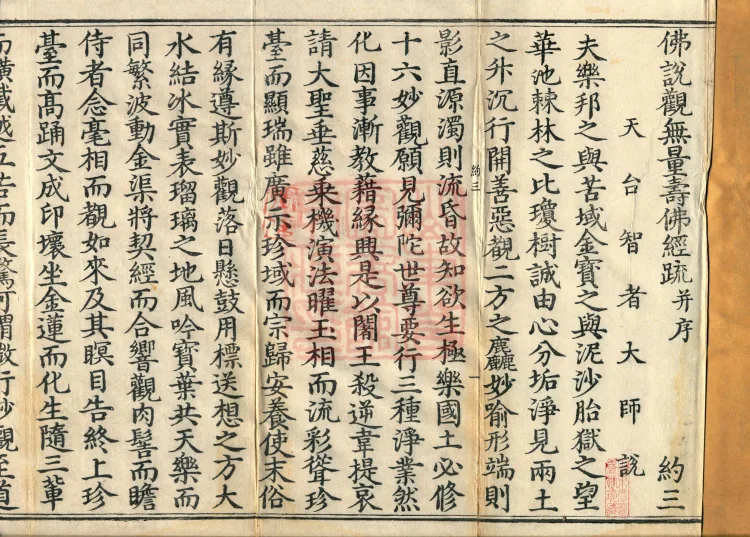 佛說觀無量壽佛經疏并序 約三
天台智者大師說
夫樂邦之與苦域金寶之與泥沙胎獄之望
華池棘林之比瓊樹誠由心分垢淨見兩土
之升沉行開善惡觀二方之麤妙喻形端則
約三 一
影直源濁則流昏故知欲生極樂國土必修
十六妙觀願見彌陀世尊要行三種淨業然
化因事漸教藉緣興是以闍王殺逆韋提哀
請大聖垂慈乘機演法曜玉相而流彩聳珍
臺而顯瑞雖廣示珍域而宗歸安養使末俗
有緣遵斯妙觀落日懸鼓用標送想之方大
水結冰實表瑠璃之地風吟寶葉共天樂而
同繁波動金渠將契經而合響觀肉髻而瞻
侍者念毫相而覩如來及其瞑目告終上珍
臺而高踊文成印壞坐金蓮而化生隨三輩
而橫截越五苦而長騖可謂微行妙觀至道